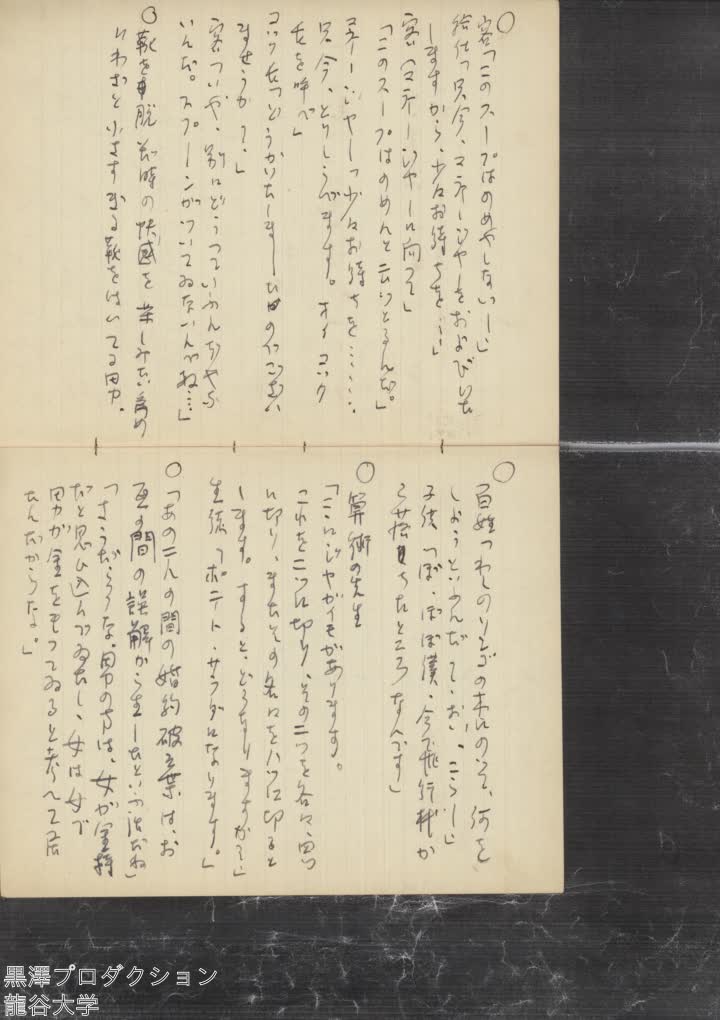 ○
客「このスープはのめやしないー」
給仕「只今、マネージャーをおよびいた
しますから、少々お待ちを…」
客（マネージャーに向って）
「このスープはのめんと云つとるんだ。」
マネージャー「少々お待ちを………
只今、とりしらべます。オイ コック
長を呼べ」
コック長「どうかいたしましたので
ませうか？」
客「いや、別にどうつていふんぢやな
いんだ。スプーンがついてゐないんでね…」
○ 靴を脱ぐ時の快感を楽しみたい為め
にわざと小さすぎる靴をはいてる男。
○
百姓「わしのリンゴの木にのぼつて、何を
しようといふんだて、おい、こらー」
子供「ぼ、ぼぼ僕、今飛行機か
ら落ちたところなんです」
○ 算術の先生
「ここにジャガイモがあります。
これを二ツに切り、その二つを各々四ツ
に切り、またその各々を八ツに切ると
します。すると、どうなりますか？」
生徒「ポテト・サラダになります。」
○
「あの二人の間の婚約破棄は、お
互の間の誤解から生じたといふ話だね」
「さうだらうな。男の方は、女が金持
だと思ひ込んでゐたし、女は女で
男が金をもつてゐると考へて居
たんだからな。」
黒澤プロダクション
龍谷大学